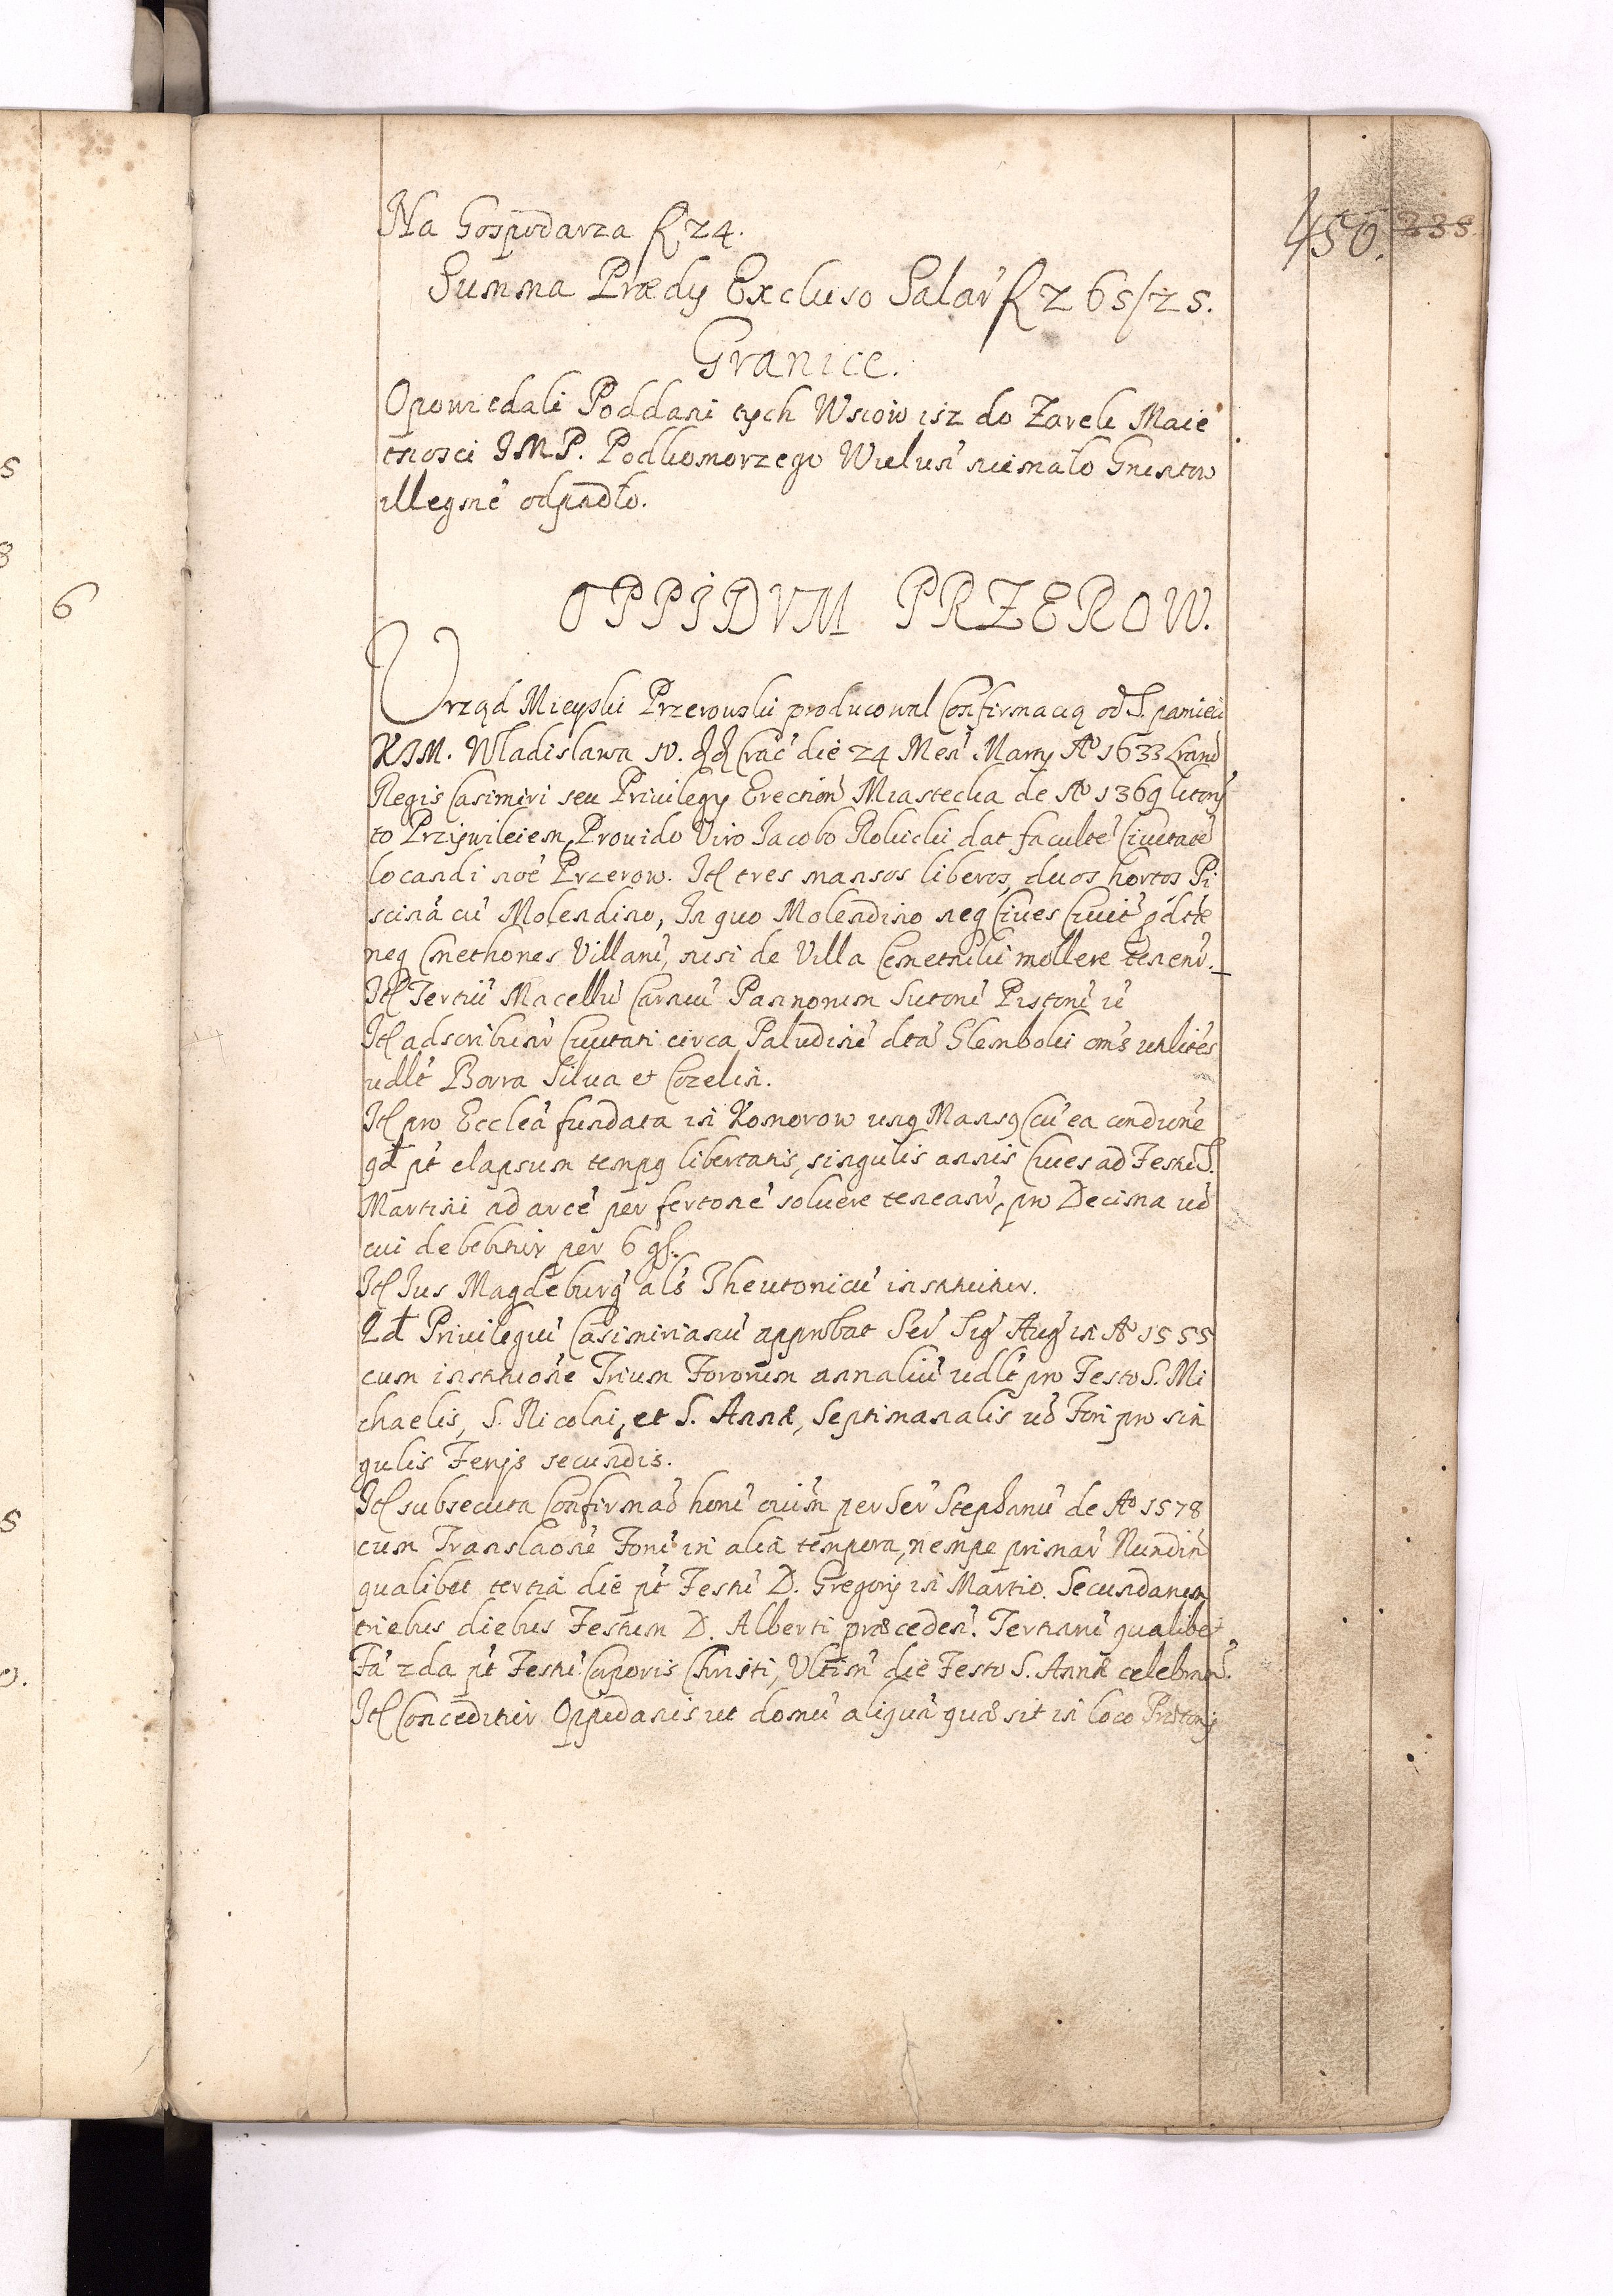 Na Gospodarza f 24.
450. 235
Summa Prædij Excluso Salar̄ f 265/25.
Granice.
Opowiedali Poddani tych Wsiow isz do Zarek Maie
tnosci JMP. Podkomorzego Wielun̄ niemało Gruntow
illegme odpadło.
OPPIDVM PRZEROW.
Urząd Mieyski Przerowski producował Confirmacią od S. pamieci
KJM. Wladisława IV. dd Crac̄ die 24 Men̄ Marty Aº 1633
Regis Casimiri seu Privilegy Erection̄ Miastecka de Aº 1369 ktory
to Przywileiem Prouido Viro Jacobo Rokicki dat facultē Ciuitatē
locandi noē Przerow. Itl tres mansos liberos, duos hortos Pi
scinā cū Molendino, In quo Molendino neq Ciues Ciuit̄ pdtæ
neq Cmethones Villani, nisi de Villa mollere tenent̄.
Itl Tertiū Macellū Carniū Pannorum Sutorū Pistorū
Itl adscribunt̄ Ciuitati circa Paludinē dtā Glemboki om̄s utilitēs
vdlt Borra Silua et Cozelin.
Itl pro Ecclēa fundata in Komorow unq Mansq cū ea condiōne
qd pt elapsum tempq libertatis, singulis annis Ciues ad Festū S.
Martini ad arcē per fertonē soluere teneant̄, pro Decima vō
cui debebitur per 6 gs.
Itl Jus Magdeburḡ als Theutonicū instituitur.
Qd Priuilegiū Casimirianū approbat Ser̄ Sig Aug in Aº 1555
cum institiōne Trium Fororum annaliū vdlt pro Festo S. Mi
chaelis, S. Nicolai, et S. Annæ, Septimanalis vō Fori pro sin
gulis Ferijs secundis.
Itl subsecuta Confirmaō horū oiūm per Ser̄ Stephanū de Aº 1578
cum Translaōne Forū in alia tempora, nempe primar̄ Nundin̄
qualibet tertia die pt Festū D. Gregorij in Martio. Secundarum
triebus diebus Festum D. Alberti præceden̄. Tertiarū qualibet
Fā 2da pt Festū Corporis Christi, Ultim̄ die Festo S. Annæ celebrand̄.
Itl Conceditur Oppidanis ut domū aliquā quæ sit in loco Prætorij